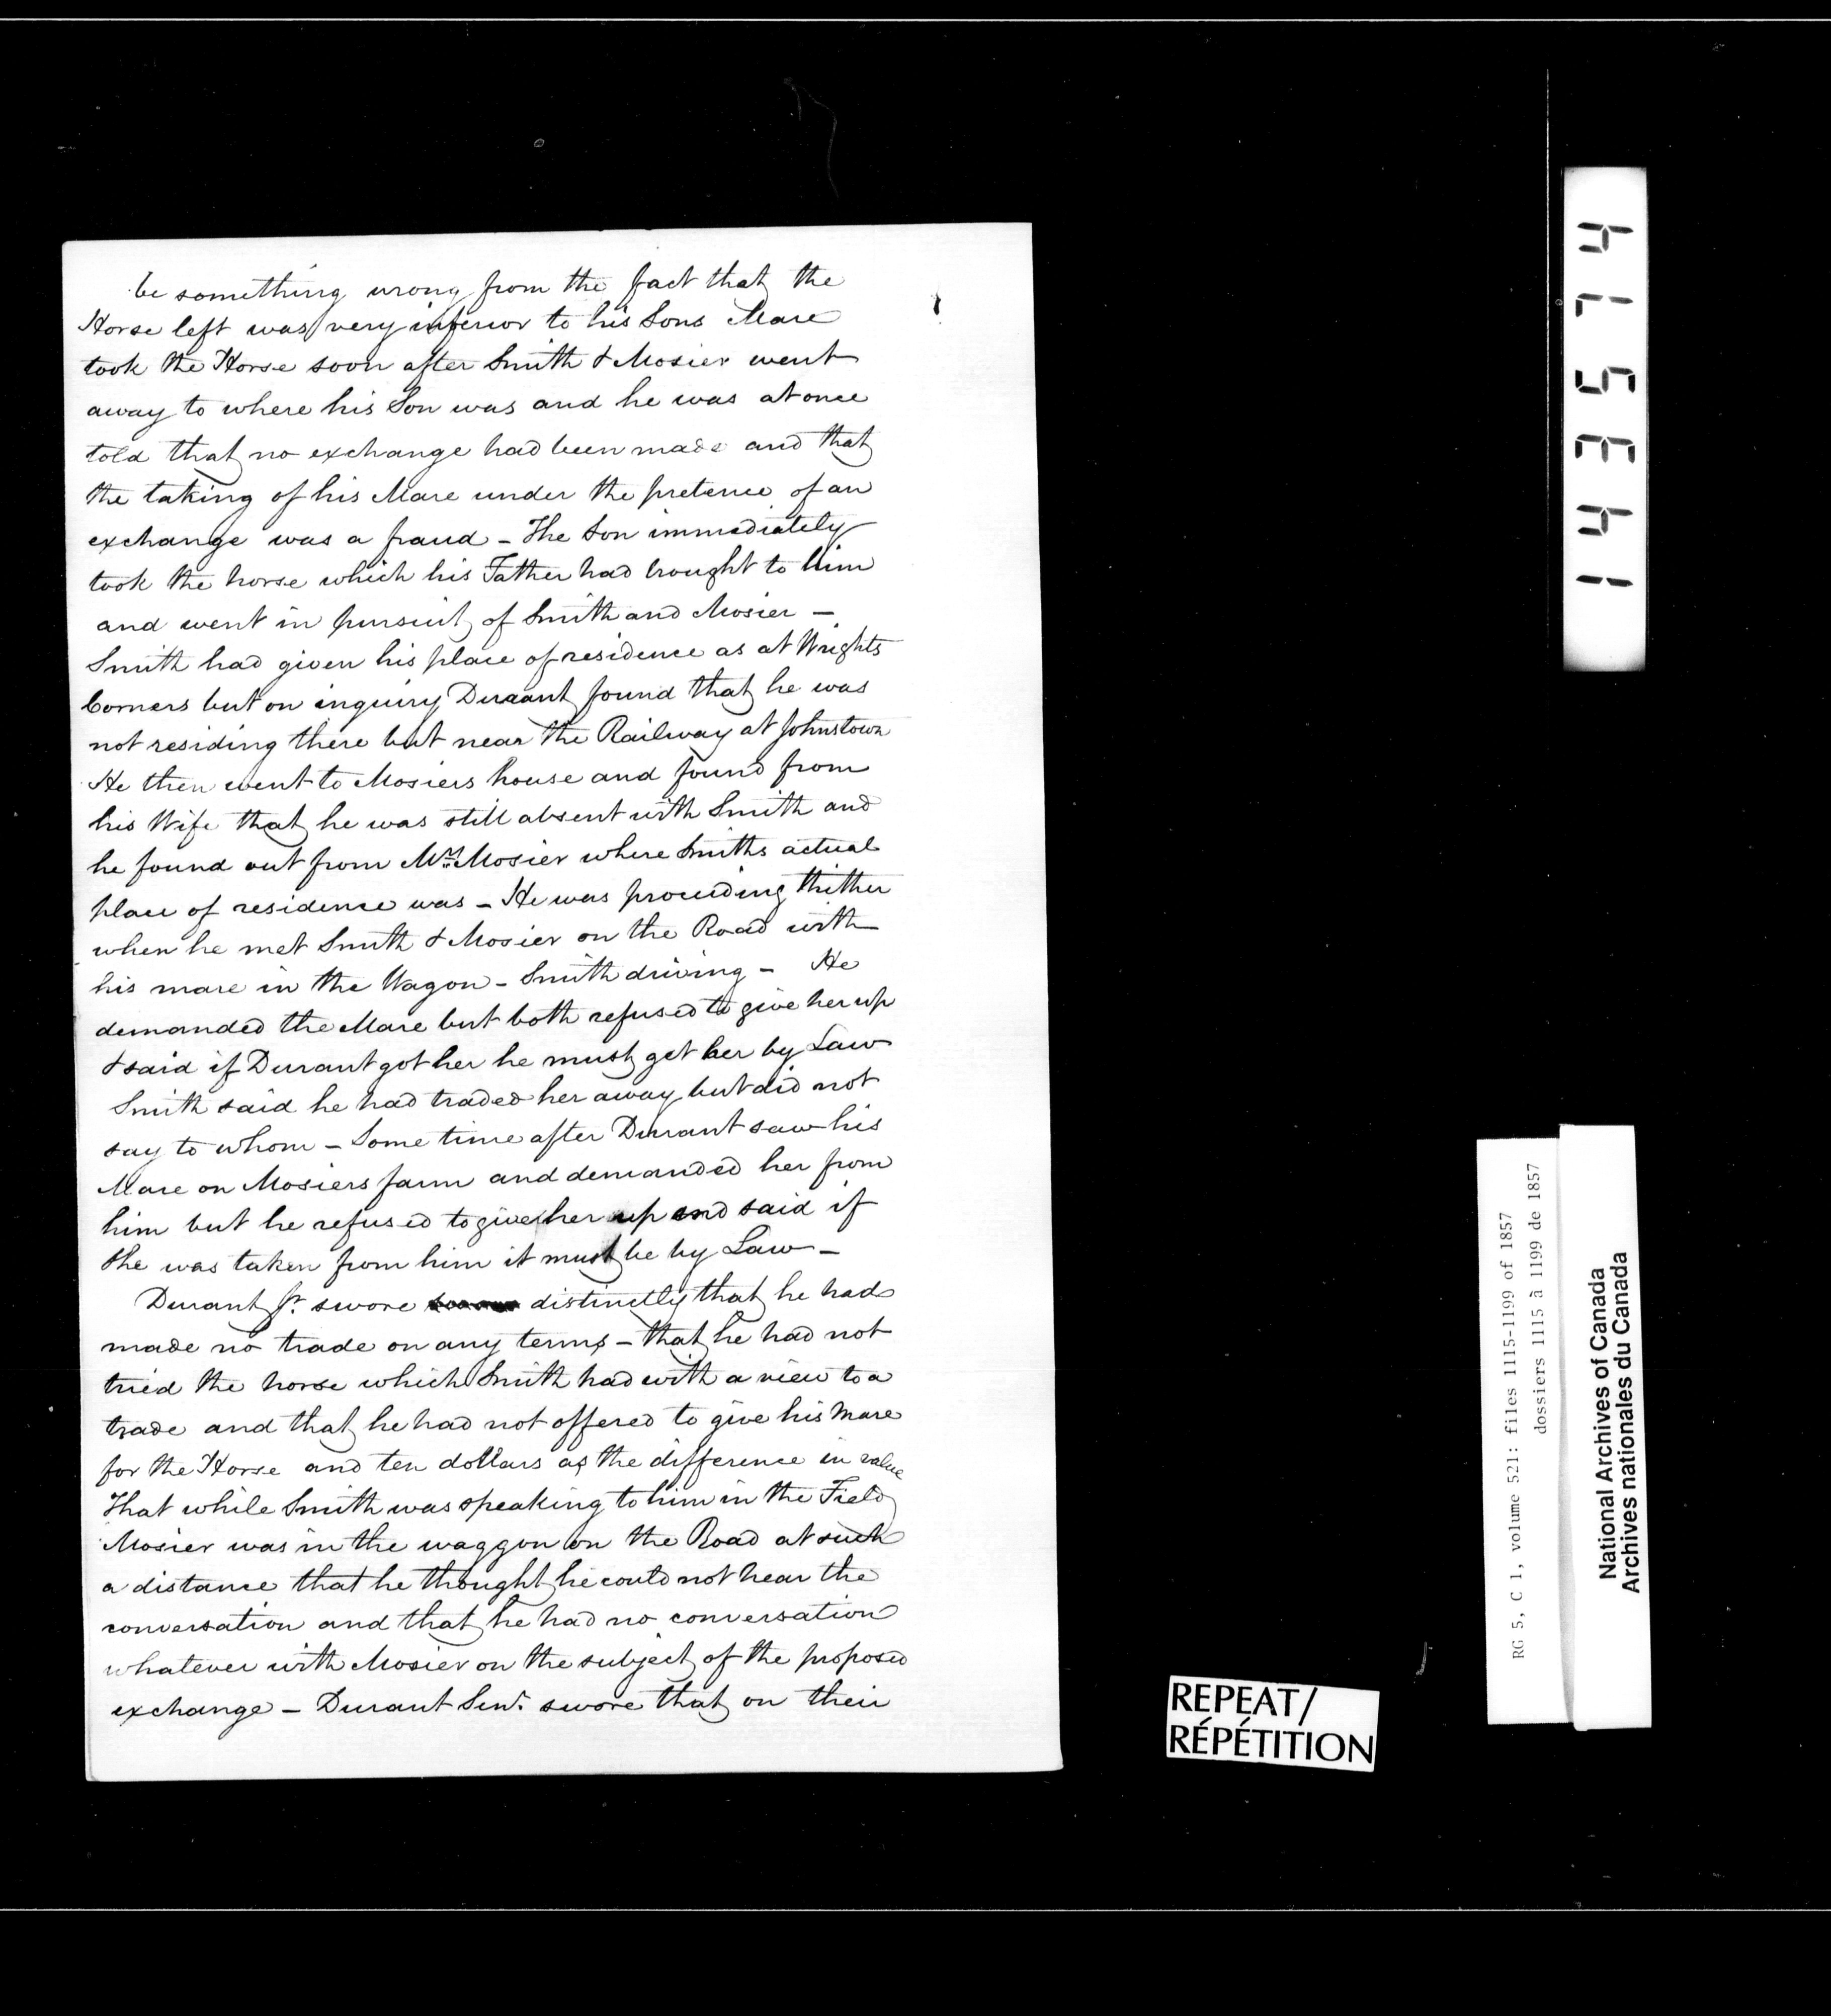 be something wrong from the fact that the
Horse left was very inferior to his Sons Mare
took the Horse soon after Smith & Mosier went
away to where his Son was and he was at once
told that no exchange had been made and that
the taking of his Mare under the pretence of an
exchange was a fraud – The Son immediately
took the horse which his Father had brought to him
and went in pursuit of Smith and Mosier –
Smith had given his place of residence as at Wrights
Corners but on inquiry Durant found that he was
not residing there but near the Railway at Johnstown
He then went to Mosiers house and found from
his Wife that he was still absent with Smith and
he found out from Mrs Mosier where Smiths actual
place of residence was – He was proceeding thither
when he met Smith & Mosier on the Road with
his mare in the Wagon – Smith driving – He
demanded the Mare but both refused to give her up
& said if Durant got her he must get her by Law
Smith said he had traded her away but did not
say to whom – Some time after Durant saw his
Mare on Mosiers farm and demanded her from
him but he refused to give her up and said if
she was taken from him it must be by Law –
Durant Jr. swore distinctly that he had
made no trade on any terms – that he had not
tried the horse which Smith had with a view to a
trade and that he had not offered to give his Mare
for the Horse and ten dollars as the difference in value
That while Smith was speaking to him in the Field
Mosier was in the waggon on the Road at such
a distance that he thought he could not hear the
conversation and that he had no conversation
whatever with Mosier on the subject of the proposed
exchange – Durant Senr. swore that on their
143574
RG 5, C 1, volume 521: files 1115-1199 of 1857
dossiers 1115 à 1199 de 1857
National Archives of Canada
Archives nationales du Canada
REPEAT/
RÉPÉTITION